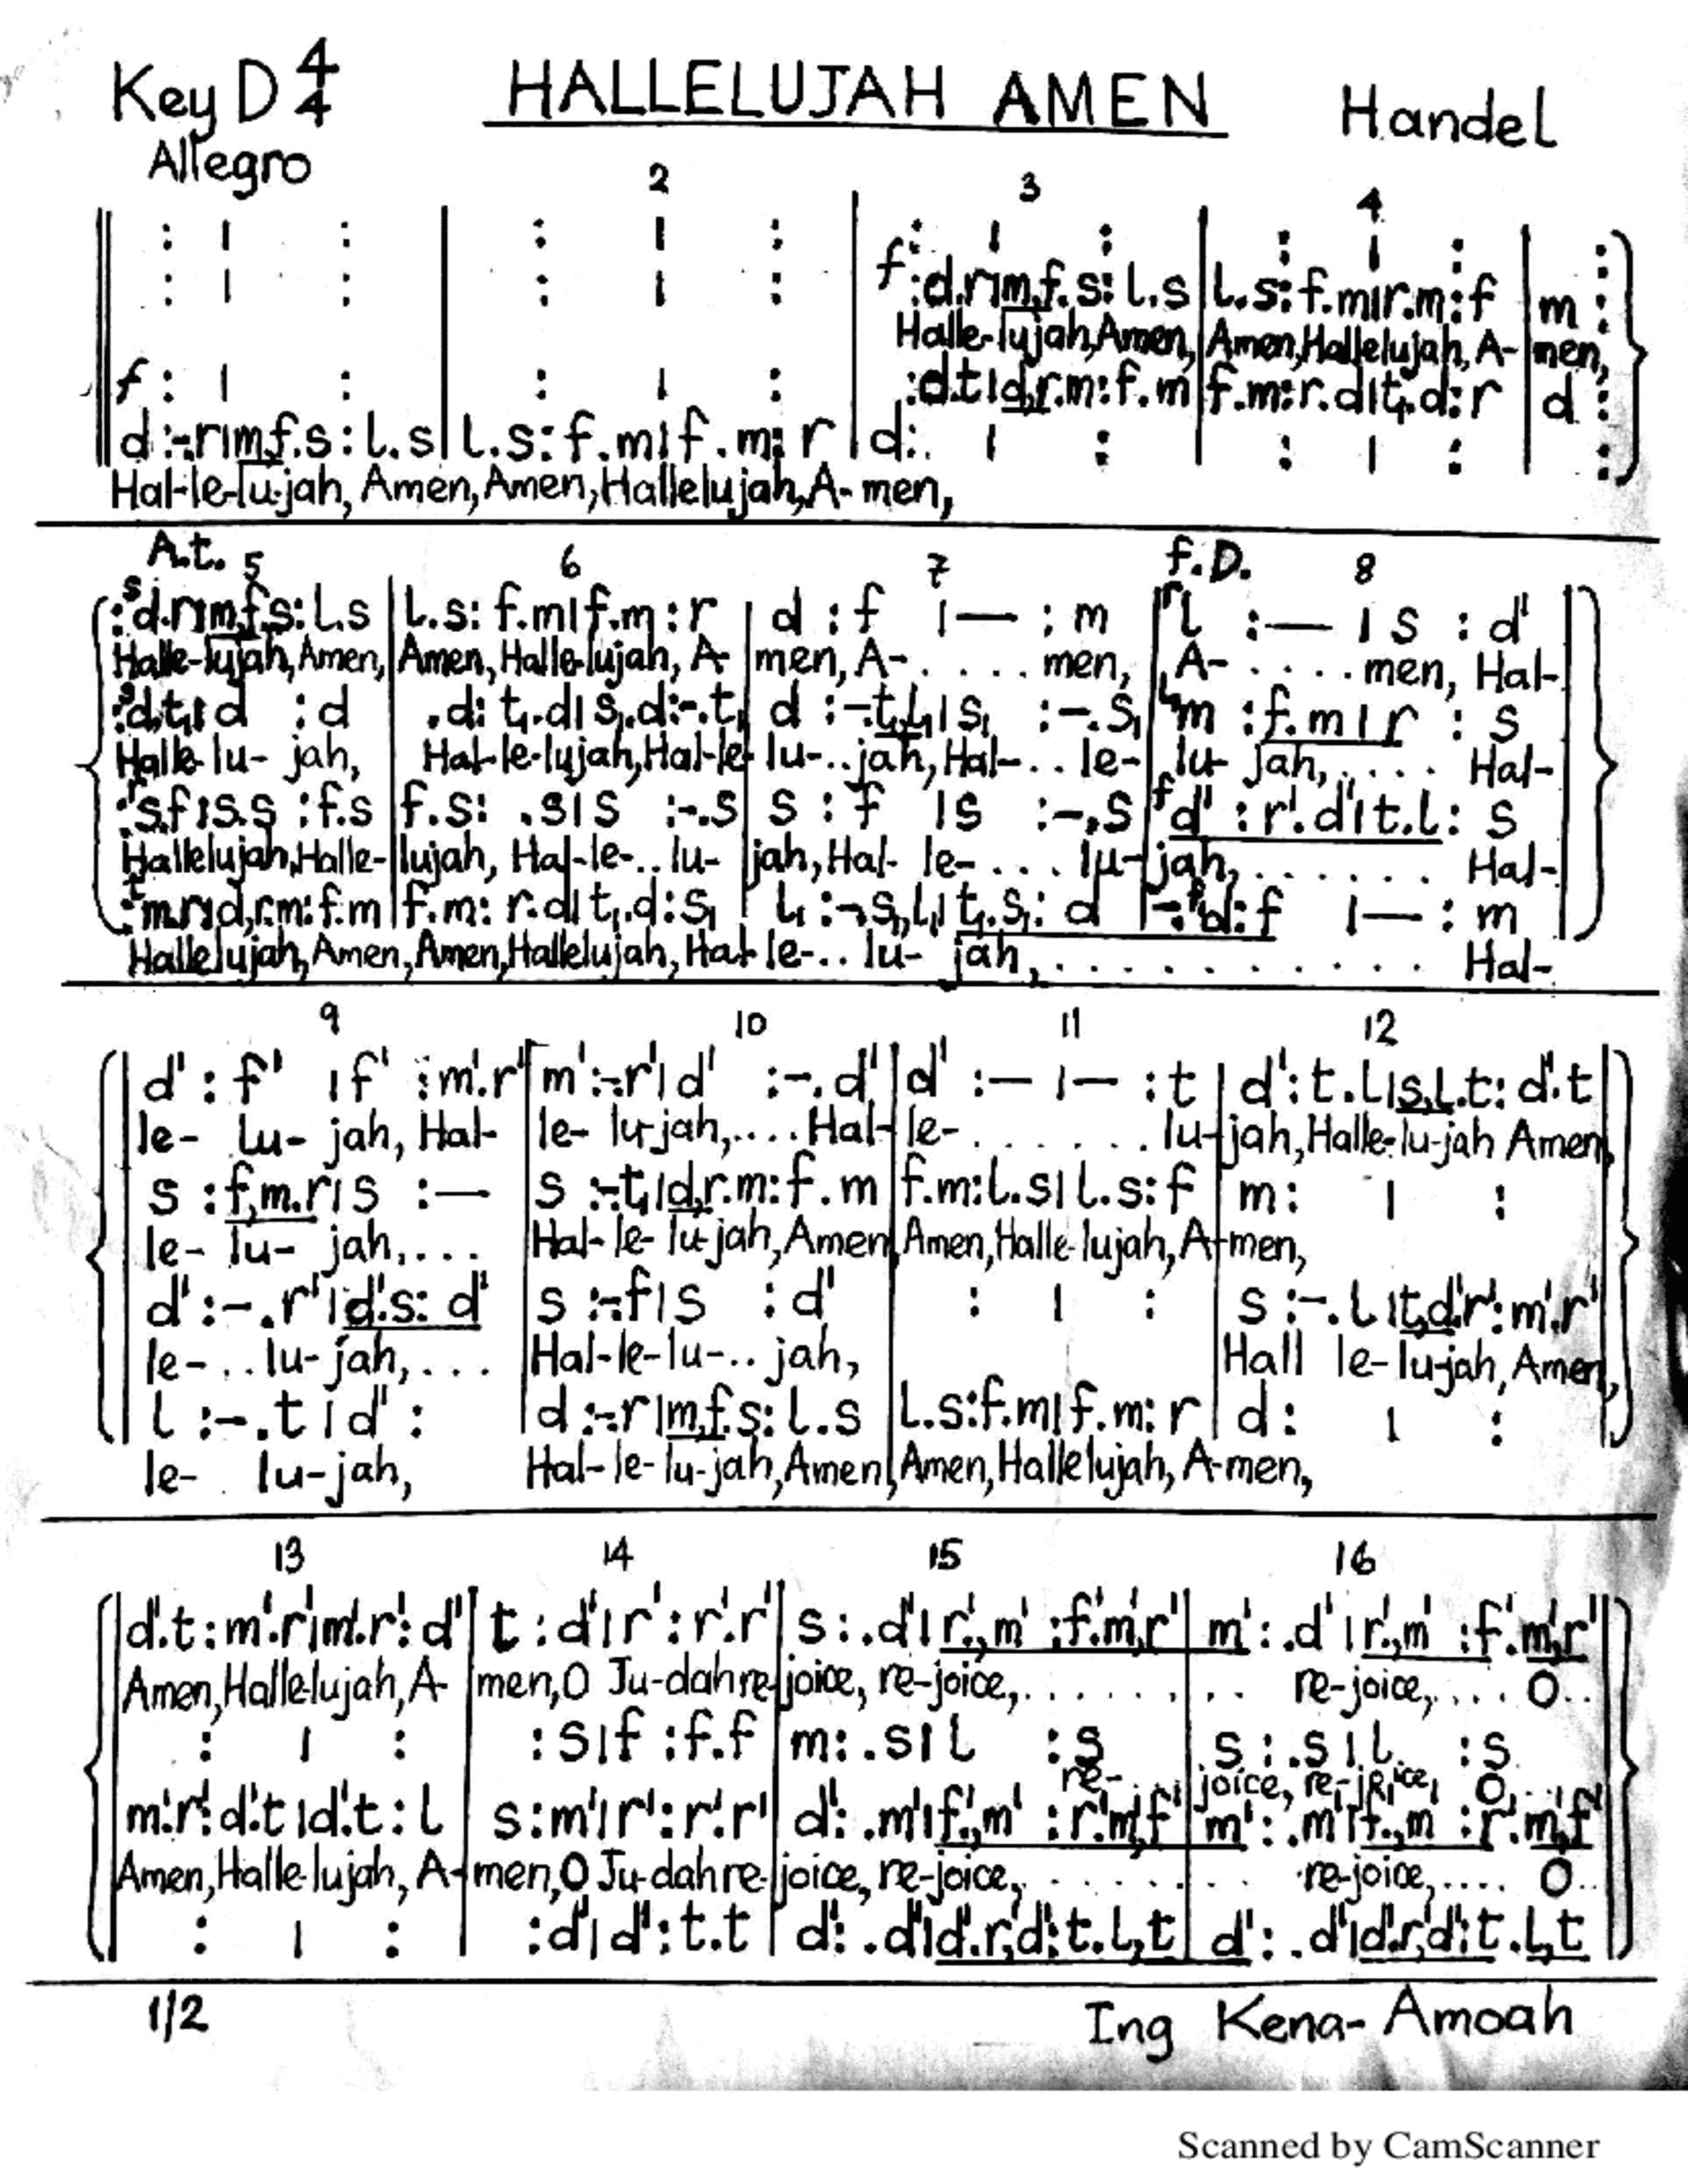 Key D 4/4 HALLELUJAH AMEN Handel
Allegro
2 3 4
: | : | : | : | : | : | : | : |
: | : | : | : f :d.r|m,f.s:l.s|l.s:f.m|r.m:f|m :
Halle-lujah, Amen, Amen, Hallelujah, A- men,
f : | : | : | : | :d.t|d,r.m:f.m|f.m:r.d|t,.d:r|d :
d :-.r|m,f.s:l.s|l.s:f.m|f.m:r|d: | : | : | : | :
Hal-le-lu-jah, Amen, Amen, Hallelujah, A- men,
A.t. 5 6 7 f.D. 8
:ˢd.r|m,f.s:l.s|l.s:f.m|f.m:r|d :f |— :m|ʳl :— |s :d'
Halle-lujah, Amen, Amen, Halle-lujah, A- men, A- . . . . men, A- . . . . men, Hal-
:ˢd.t,|d :d |.d:t,.d|s,.d:-.t,|d :-.t,l,|s, :-.s,|ˡm :f.m|r :s
Halle-lu- jah, Hal-le-lujah, Hal-le- lu-..jah, Hal-.. le- lu- jah, . . . . Hal-
:ʳs.f|s.s :f.s|f.s: .s|s :-.s|s :f |s :-.s|ᶠd' :r'.d'|t.l:s
Hallelujah, Halle- lujah, Hal-le-.. lu- jah, Hal- le- . . . lu- jah, . . . . . . Hal-
:ᵗm.r|d,r.m:f.m|f.m:r.d|t,.d:s,|l, :-.s,,l,|t,.s,:d|-.ᶠd:f |— :m
Hallelujah, Amen, Amen, Hallelujah, Hal- le-.. lu- jah, . . . . . . . . . . . Hal-
9 10 11 12
d' :f' |f' :m'.r'|m':-.r'|d' :-.d'|d' :— |— :t|d':t.l|s,l.t:d'.t
le- lu- jah, Hal- le- lu-jah, .... Hal- le- . . . . . . . lu- jah, Halle-lu-jah Amen,
s :f,m.r|s :— |s :-.t,|d,r.m:f.m|f.m:l.s|l.s:f|m: | :
le- lu- jah, . . . Hal- le- lu-jah, Amen, Amen, Halle-lujah, A- men,
d' :-.r'|d'.s:d'|s :-.f|s :d'| : | : |s :-.l|t,d'.r':m'.r'
le- .. lu-jah, . . . Hal-le-lu-.. jah, Hall le-lu-jah, Amen,
l :-.t|d' : |d :-.r|m,f.s:l.s|l.s:f.m|f.m:r|d: | :
le- lu-jah, Hal- le- lu-jah, Amen, Amen, Hallelujah, A-men,
13 14 15 16
d'.t:m'.r'|m'.r':d'|t :d'|r':r'.r'|s:.d'|r'.,m':f'.m',r'|m':.d'|r'.,m':f'.m',r'
Amen, Halle-lujah, A- men, O Ju-dah re- joice, re-joice, . . . . . . . . re-joice, . . . . O..
: | : | :s|f :f.f|m:.s|l :s|s:.s|l :s
re- joice, re-joice, O . .
m'.r':d'.t|d'.t:l|s:m'|r':r'.r'|d':.m'|f'.,m':r'.m',f'|m':.m'|f.,m:r'.m',f'
Amen, Halle-lujah, A- men, O Ju-dah re- joice, re-joice, . . . . . . . . re-joice, .... O..
: | : | :d'|d':t.t|d':.d'|d'.r',d':t.l,t|d':.d'|d'.r',d':t.l,t
1/2 Ing Kena-Amoah
Scanned by CamScanner